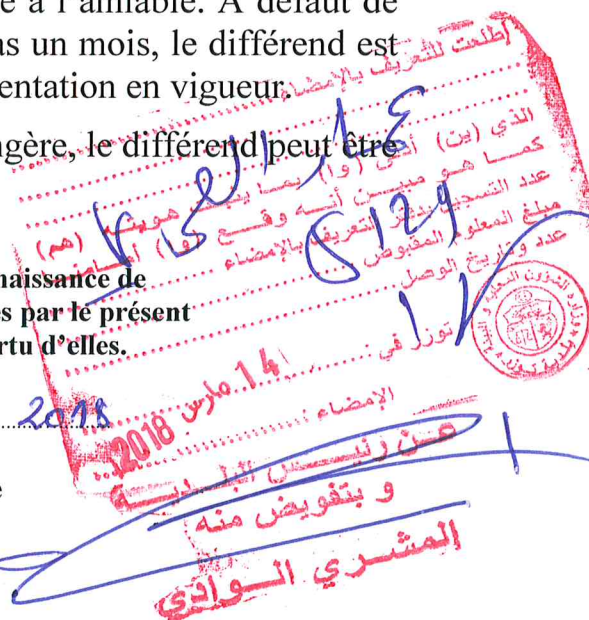 e à l'amiable. A défaut de
s un mois, le différend est
entation en vigueur.
ngère, le différend peut être
naissance de
s par le présent
rtu d'elles.
2018
أطلعت للتعريف بالإمضاء
الذي (ين) أدلى (وا) بما يثبت هويته (هم)
كما هو مبين أنه وقع (وا) أمامنا
عدد التسجيل بدفتر التعريف بالإمضاء
8129
مبلغ المعلوم المقبوض
عدد وتاريخ الوصل
توزر في :
14 مارس 2018
الإمضاء :
عن رئيس البلدية
و بتفويض منه
المشري الوادي